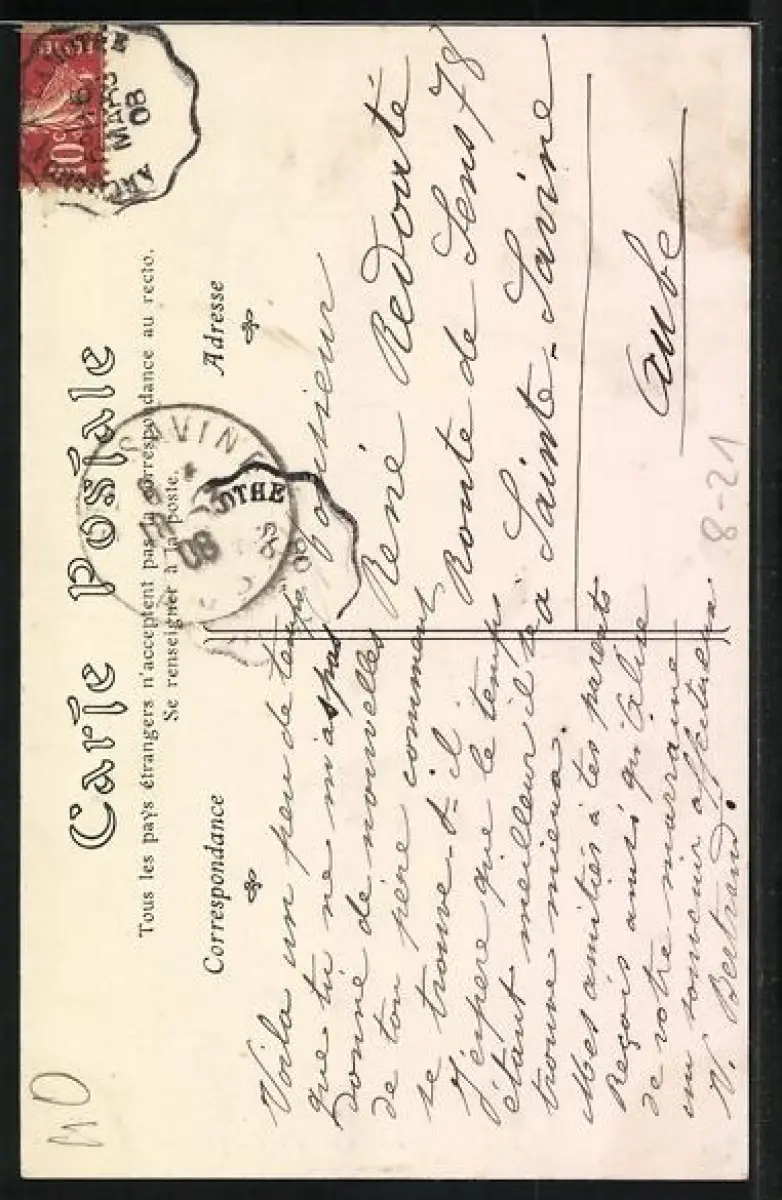 Carte Postale
Tous les pays étrangers n'acceptent pas la correspondance au recto.
Se renseigner à la poste.
Correspondance
Adresse
Voila un peu de temps
que tu ne m'as pas
donné de nouvelles
de ton père comment
se trouve-t-il
J'espere que le temps
étant meilleur il se
trouve mieux.
Mes amitiés à tes parents
Reçois ainsi qu'Alise
de votre marraine
un souvenir affectueux
V. Bertrand.
Monsieur
René Redouté
Route de Sens 78
à Sainte-Savine
Aube
8-21
10c
MARS
08
SAVINE
08
OTHE
08